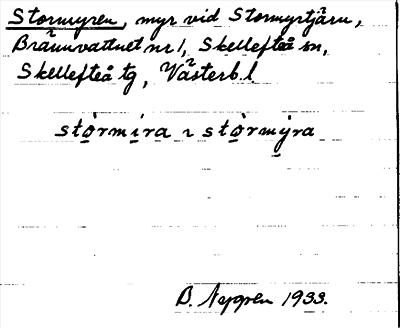 Stormyren, myr vid Stormyrtjärn,
Brännvattnet nr 1, Skellefteå sn,
Skellefteå tg, Västerb. l.
stòrmíra ı stòrmýra
B. Nygren 1933.